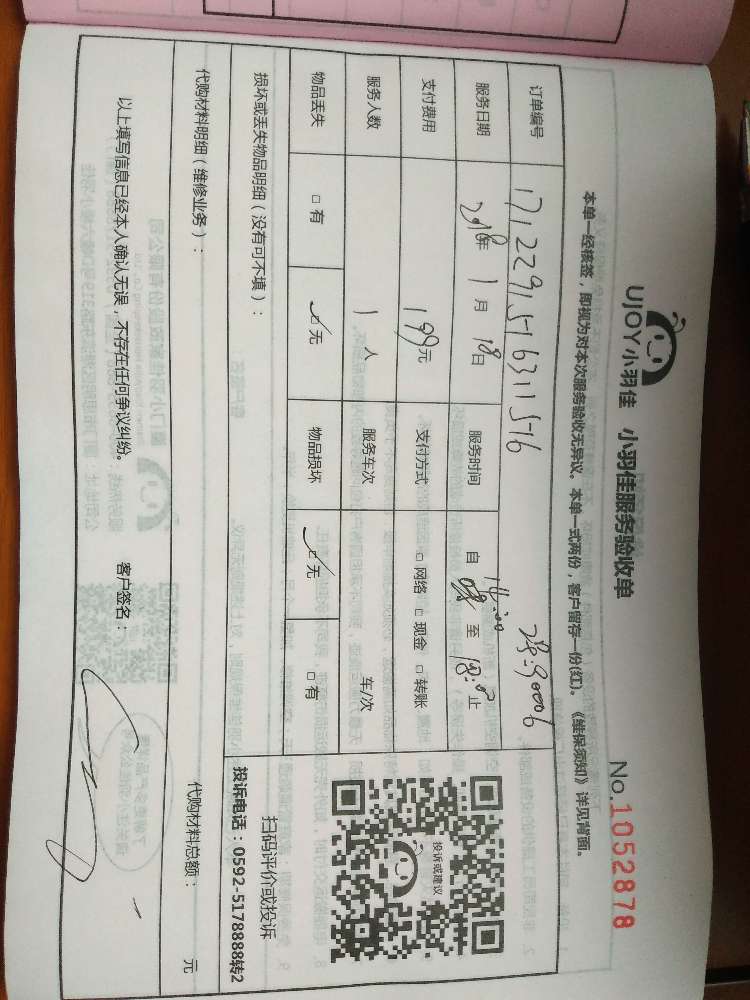 UJOY小羽佳 小羽佳服务验收单 No.1052878
本单一经核签，即视为对本次服务验收无异议。本单一式两份，客户留存一份(红)。《维保须知》详见背面。
订单编号 1712291516311516
服务日期 2018年 1月 18日 服务时间 自 至 18:00止
支付费用 199元 支付方式 □ 网络 □ 现金 □ 转账
服务人数 1 人 服务车次 车/次
物品丢失 □ 有 ☑ 无 物品损坏 ☑ 无 □ 有
投诉或建议
扫码评价或投诉
投诉电话：0592-5178888转2
损坏或丢失物品明细（没有可不填）：
代购材料明细（维修业务）： 代购材料总额： 元
以上填写信息已经本人确认无误，不存在任何争议纠纷。 客户签名：